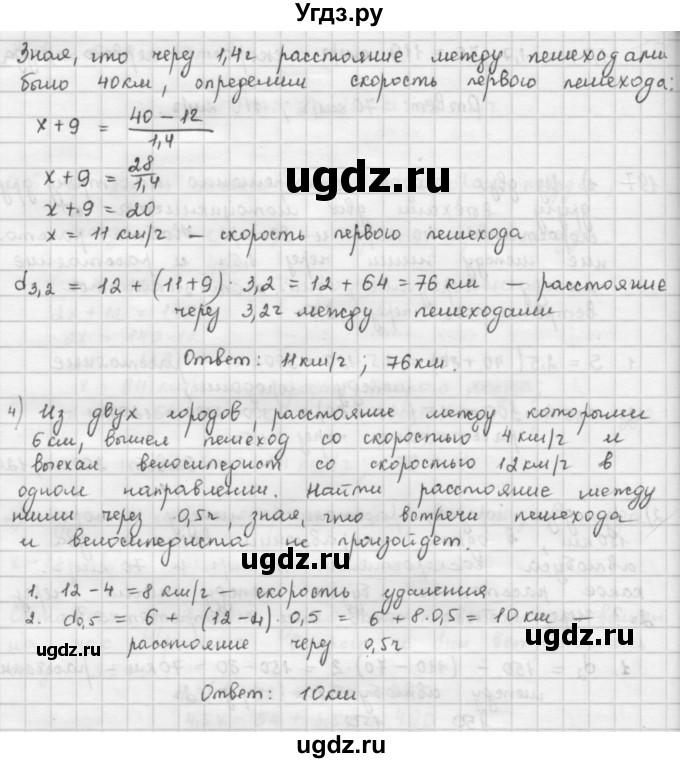 Угдз.ру
Зная, что через 1,4г расстояние между пешеходами
было 40км, определим скорость первого пешехода:
x+9 = (40-12)/1,4
x+9 = 28/1,4
ugdz.ru
x+9 = 20
x = 11 км/г — скорость первого пешехода
ugdz.ru
d3,2 = 12 + (11+9) · 3,2 = 12 + 64 = 76 км — расстояние
через 3,2г между пешеходами
Ответ: 11км/г, 76км.
ugdz.ru
4) Из двух городов, расстояние между которыми
6км, вышел пешеход со скоростью 4км/г и
выехал велосипедист со скоростью 12км/г в
одном направлении. Найти расстояние между
ними через 0,5г, зная, что встречи пешехода
и велосипедиста не произойдет.
ugdz.ru
1. 12-4 = 8 км/г — скорость удаления
2. d0,5 = 6 + (12-4) · 0,5 = 6+8·0,5 = 10км —
расстояние через 0,5г
ugdz.ru
Ответ: 10км
ugdz.ru